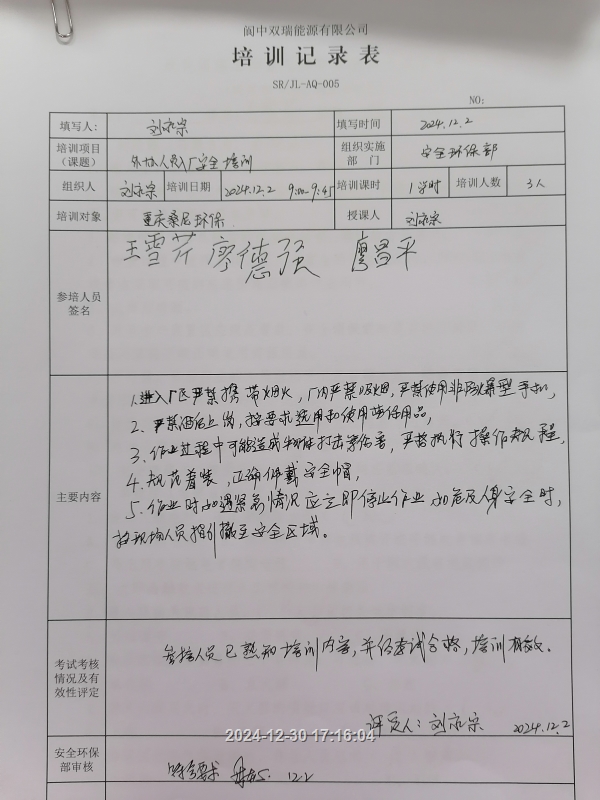 阆中双瑞能源有限公司
培训记录表
SR/JL-AQ-005
NO:
填写人: 填写时间 2024.12.2
培训项目（课题） 外协人员入厂安全培训 组织实施部门 安全环保部
组织人 培训日期 2024.12.2 9:00-9:45 培训课时 1学时 培训人数 3人
培训对象 重庆桑尼环保 授课人
参培人员签名 王雪芹 廖德强 廖昌平
主要内容
1.进入厂区严禁携带烟火，厂内严禁吸烟，严禁使用非防爆型手机，
2、严禁酒后上岗，按要求选用和使用劳保用品，
3、作业过程中可能造成物体打击等伤害，严格执行操作规程，
4、规范着装，正确佩戴安全帽，
5、作业时如遇紧急情况应立即停止作业 如危及人身安全时，
按现场人员指引撤至安全区域。
考试考核情况及有效性评定
参培人员已熟知培训内容，并经考试合格，培训有效。
评定人： 2024.12.2
2024-12-30 17:16:04
安全环保部审核 符合要求 12.2